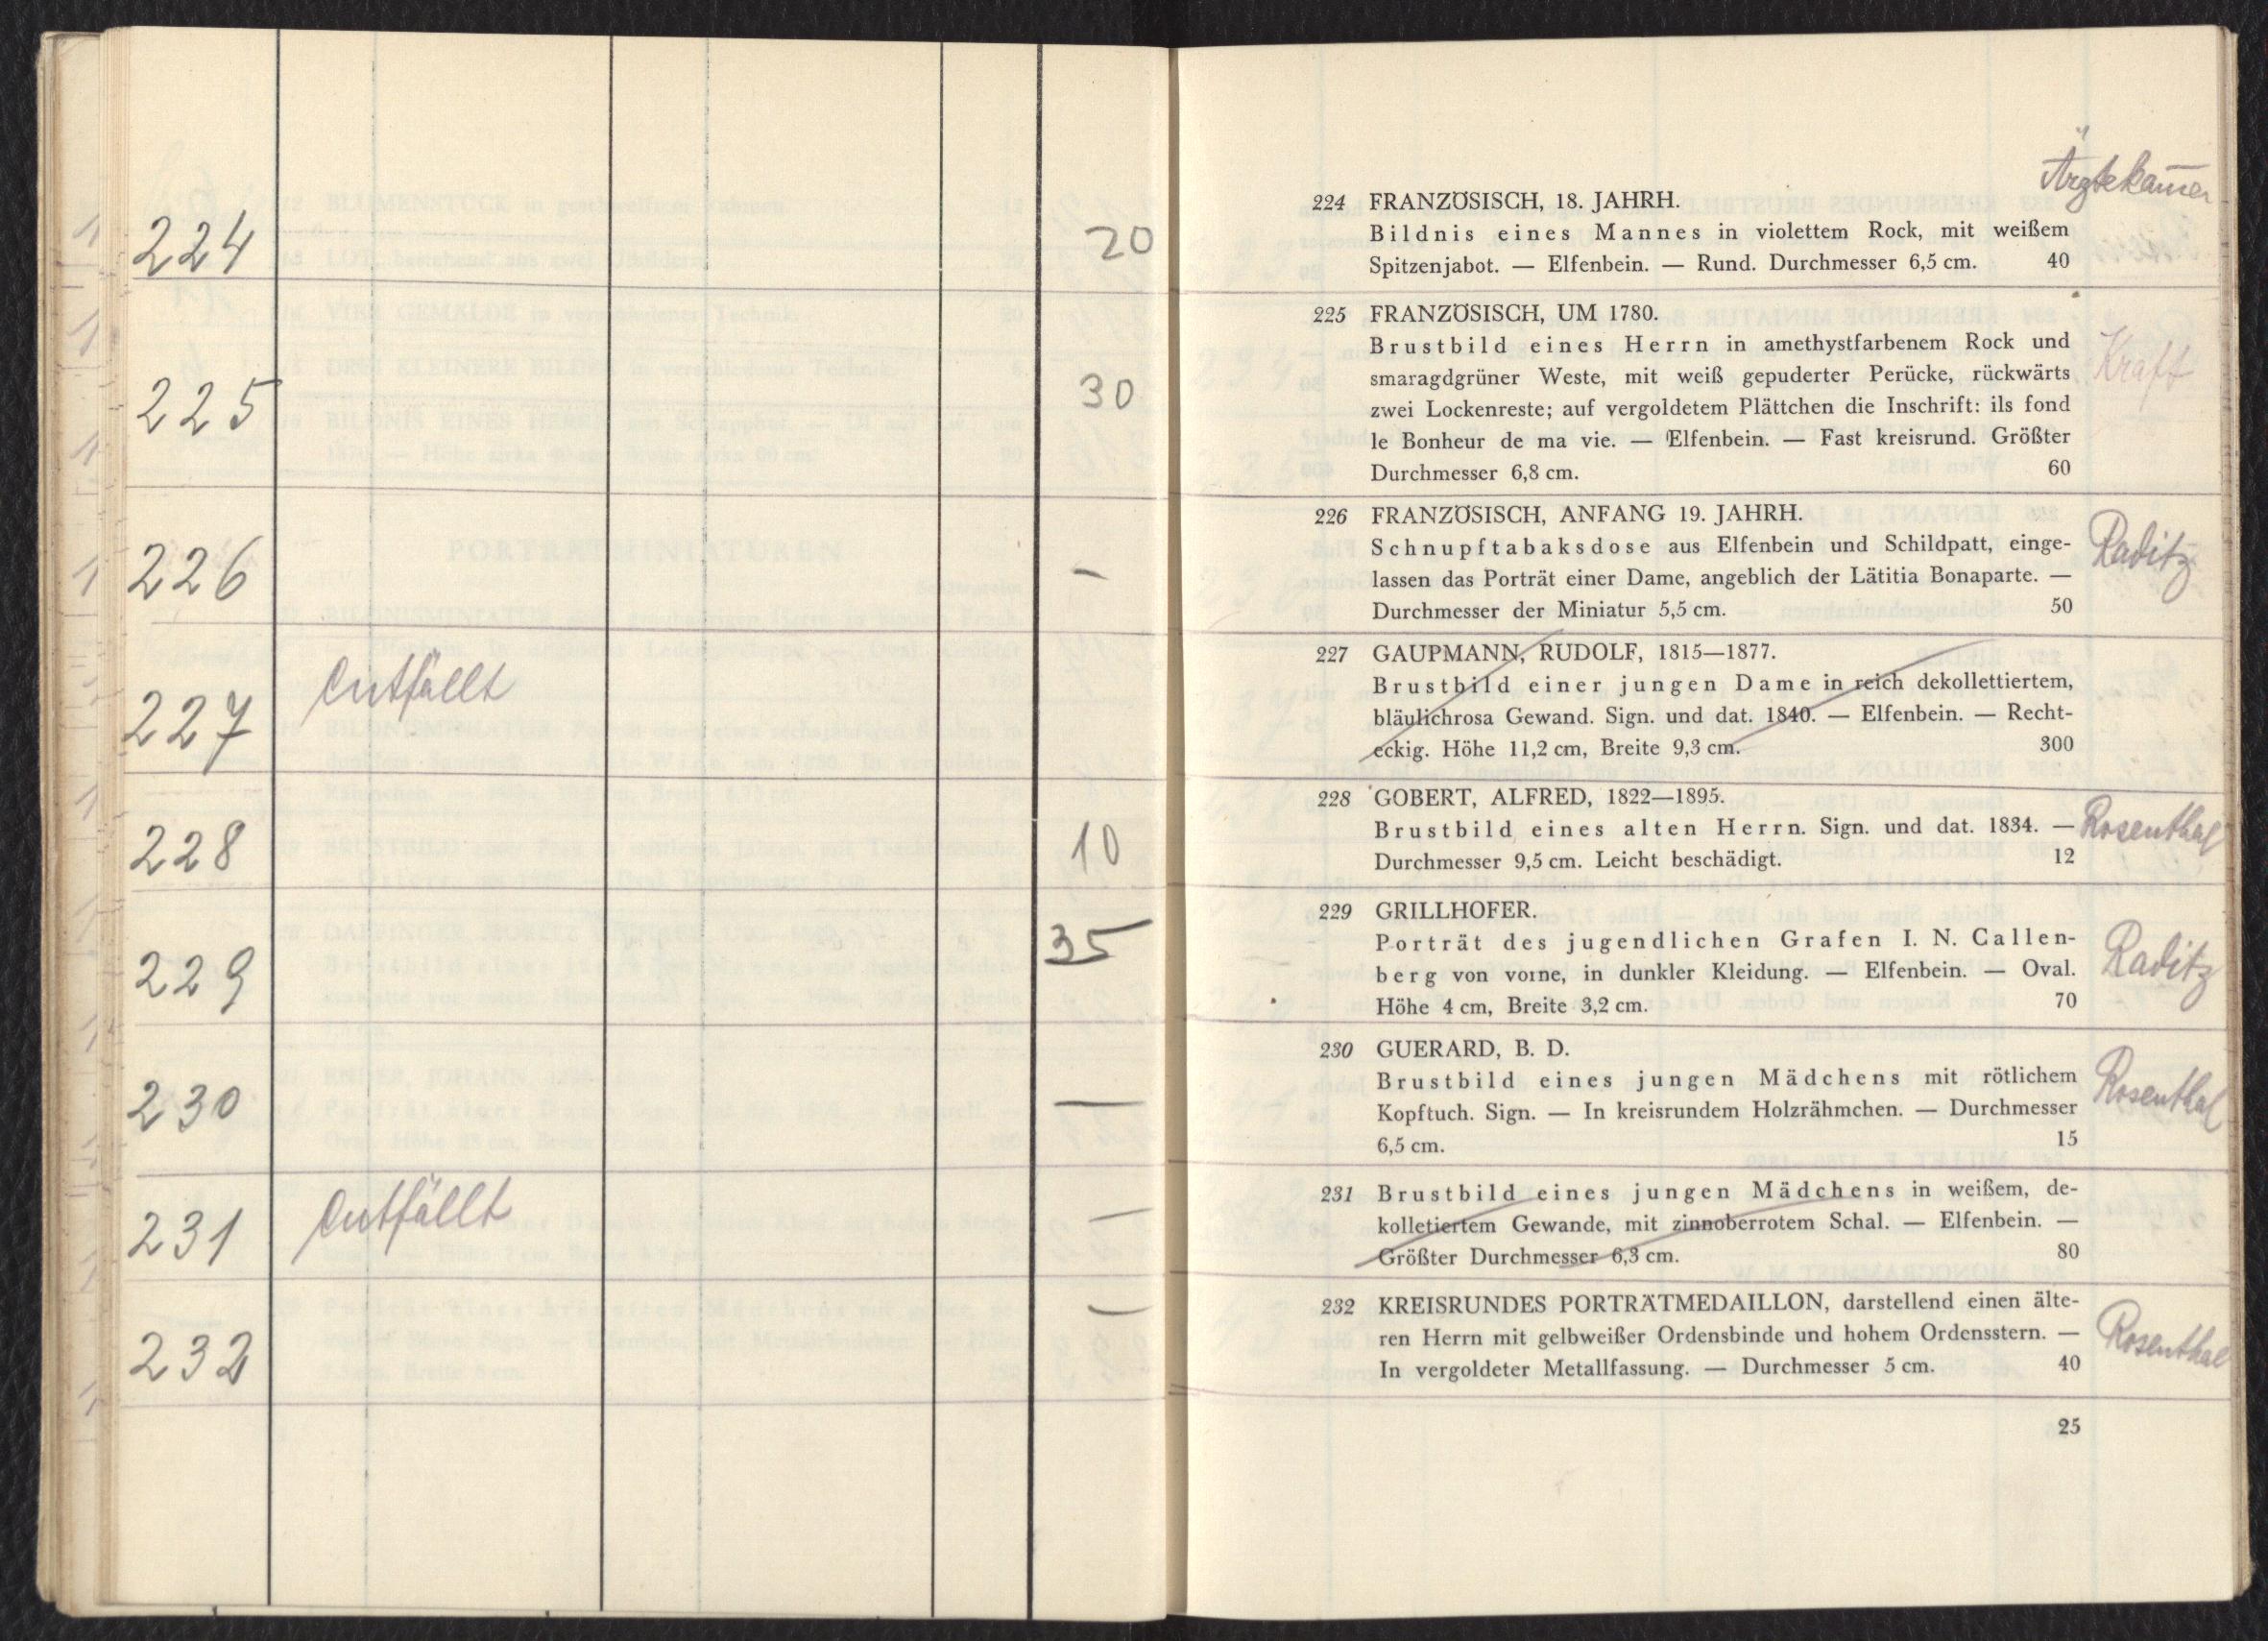 224
20
225
30
226
—
227
entfällt
228
10
229
35
230
—
231
entfällt
—
232
—
Ärztekam̄er
224 FRANZÖSISCH, 18. JAHRH.
Bildnis eines Mannes in violettem Rock, mit weißem
Spitzenjabot. — Elfenbein. — Rund. Durchmesser 6,5 cm. 40
225 FRANZÖSISCH, UM 1780.
Brustbild eines Herrn in amethystfarbenem Rock und
smaragdgrüner Weste, mit weiß gepuderter Perücke, rückwärts Kraft
zwei Lockenreste; auf vergoldetem Plättchen die Inschrift: ils fond
le Bonheur de ma vie. — Elfenbein. — Fast kreisrund. Größter
Durchmesser 6,8 cm. 60
226 FRANZÖSISCH, ANFANG 19. JAHRH.
Schnupftabaksdose aus Elfenbein und Schildpatt, einge- Raditz
lassen das Porträt einer Dame, angeblich der Lätitia Bonaparte. —
Durchmesser der Miniatur 5,5 cm. 50
227 GAUPMANN, RUDOLF, 1815—1877.
Brustbild einer jungen Dame in reich dekollettiertem,
bläulichrosa Gewand. Sign. und dat. 1840. — Elfenbein. — Recht-
eckig. Höhe 11,2 cm, Breite 9,3 cm. 300
228 GOBERT, ALFRED, 1822—1895.
Brustbild eines alten Herrn. Sign. und dat. 1834. — Rosenthal
Durchmesser 9,5 cm. Leicht beschädigt. 12
229 GRILLHOFER.
Porträt des jugendlichen Grafen I. N. Callen-
berg von vorne, in dunkler Kleidung. — Elfenbein. — Oval. Raditz
Höhe 4 cm, Breite 3,2 cm. 70
230 GUERARD, B. D.
Brustbild eines jungen Mädchens mit rötlichem Rosenthal
Kopftuch. Sign. — In kreisrundem Holzrähmchen. — Durchmesser
6,5 cm. 15
231 Brustbild eines jungen Mädchens in weißem, de-
kolletiertem Gewande, mit zinnoberrotem Schal. — Elfenbein. —
Größter Durchmesser 6,3 cm. 80
232 KREISRUNDES PORTRÄTMEDAILLON, darstellend einen älte-
ren Herrn mit gelbweißer Ordensbinde und hohem Ordensstern. — Rosenthal
In vergoldeter Metallfassung. — Durchmesser 5 cm. 40
25